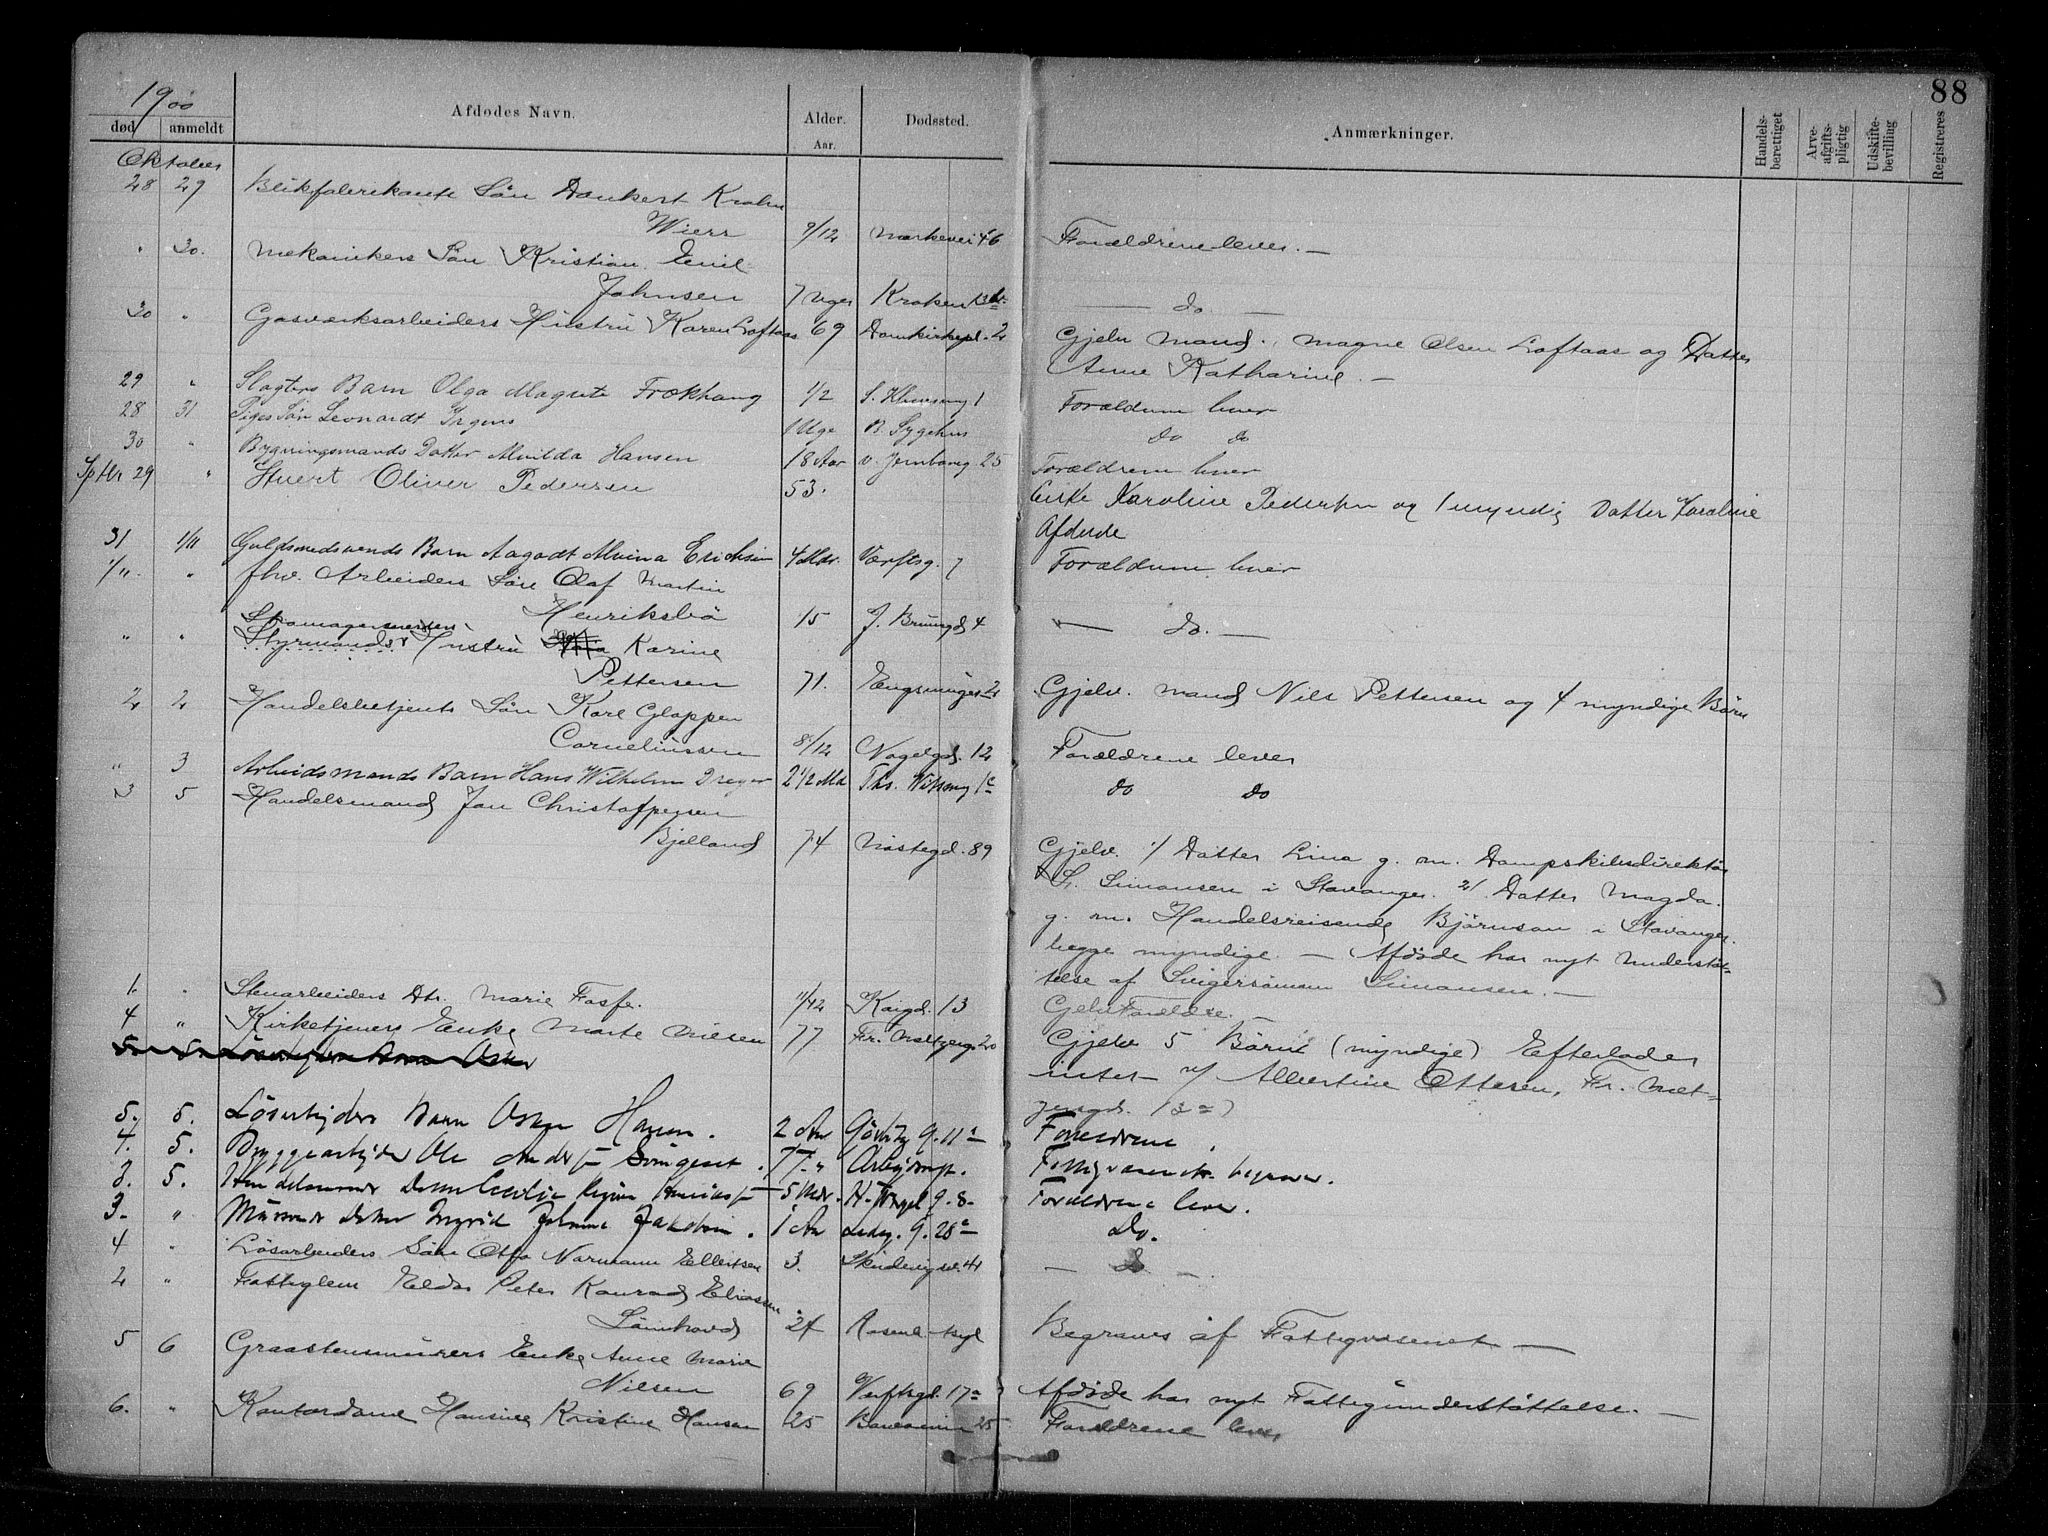 88
1900
død anmeldt Afdødes Navn. Alder. Aar. Dødssted. Anmærkninger. Handels-berettiget Arve-afgifts-pligtig Udskifte-bevilling Registreres
Oktober
28 29 Blikfabrikants Søn Dankert Krohn
Wiers 9/12 Markevei 46 Forældrene lever. —
" 30. Mekanikers Søn Kristian Emil
Johnsen 7 Uger Kroken — do. —
30 " Gasværksarbeiders Hustru Karen Loftaas 69 Domkirkepl. 2 Gjelv Mand. Magne Olsen Loftaas og Datter
Anne Katharine. —
29 " Slagters Barn Olga Magrete 1/2 1 Forældrene lever
28 31 Piges Søn Leonardt Irgens 1 Uge B. Sygehus Do Do
30 " Bygningsmands Datter Alvilda Hansen 18 Aar v. Jernbaneg 25 Forældrene lever
Sptbr 29 " Stuert Oliver Pedersen 53. Enke Karoline Pedersen og 1 myndig Datter Karoline
Afdøde
31 1/11 Guldsmedsvends Barn Aagodt Alvina Erichsen 4 Mdr. Værftsg. 7 Forældrene lever
1/11. " fhv. Arbeiders Søn Olaf Martin
Henriksbø 15 J. Bruunsgd 4 — do. —
Skomagersvends
" " Styrmands Hustru Karine
Pettersen 71. Engsmuget 2 Gjelv. Mand Nils Pettersen og 4 myndige Børn
2 2 Handelsbetjents Søn Karl Gloppen
Corneliussen 8/12 Nagelgd. 12 Forældrene lever
" 3 Arbeidsmands Barn Hans Wilhelm Dreyer 2 1/2 Md Do Do
3 5 Handelsmand Jan Christoffersen
Bjelland 74 Nøstegd. 89 Gjelv. 1/ Datter Lina g. m. Dampskibsdirektør
L. Simonsen i Stavanger. 2/ Datter Magda.
g. m. Handelsreisende Bjørnson i Stavanger.
begge myndige. — Afdøde har nydt Understøt-
telse af Svigersønnen Simonsen. —
1. " Stenarbeiders Dtr. Marie Fosse. 11/12 Kaigd. 13 Gjelv Forældre. —
4 " Kirketjeners Enke Marte Nilsen 77 Gjelv 5 Børn (myndige) Efterlader
intet v/ Albertine Ottesen, Fr. Melt-
zersgd.
5. 5. Løsarbejders Barn Oskar Hansen. 2 Aar 11a Forældrene
4. 5. Bryggearbejder Ole 77. " Fattigvæsenet begraver.
3. 5. 5 Mdr. 8. Forældrene lever.
3. " Murmands Datter Ingrid Johanne Jakobsen. 1 Aar Do.
4 " Løsarbeiders Søn Otto Normann Ellertsen 3. Skudevigsv. 4 — do —
2 " Fattiglem Peter Konrad Eliasen
27 Rosenb. Begraves af Fattigvæsenet —
5 6 Graastensmurers Enke Anne Marie
Nilsen 69 Verftsgd. 17a Afdøde har nydt Fattigunderstøttelse. —
6. " Kontordame Hansine Kristine Hansen 25 25 Forældrene lever